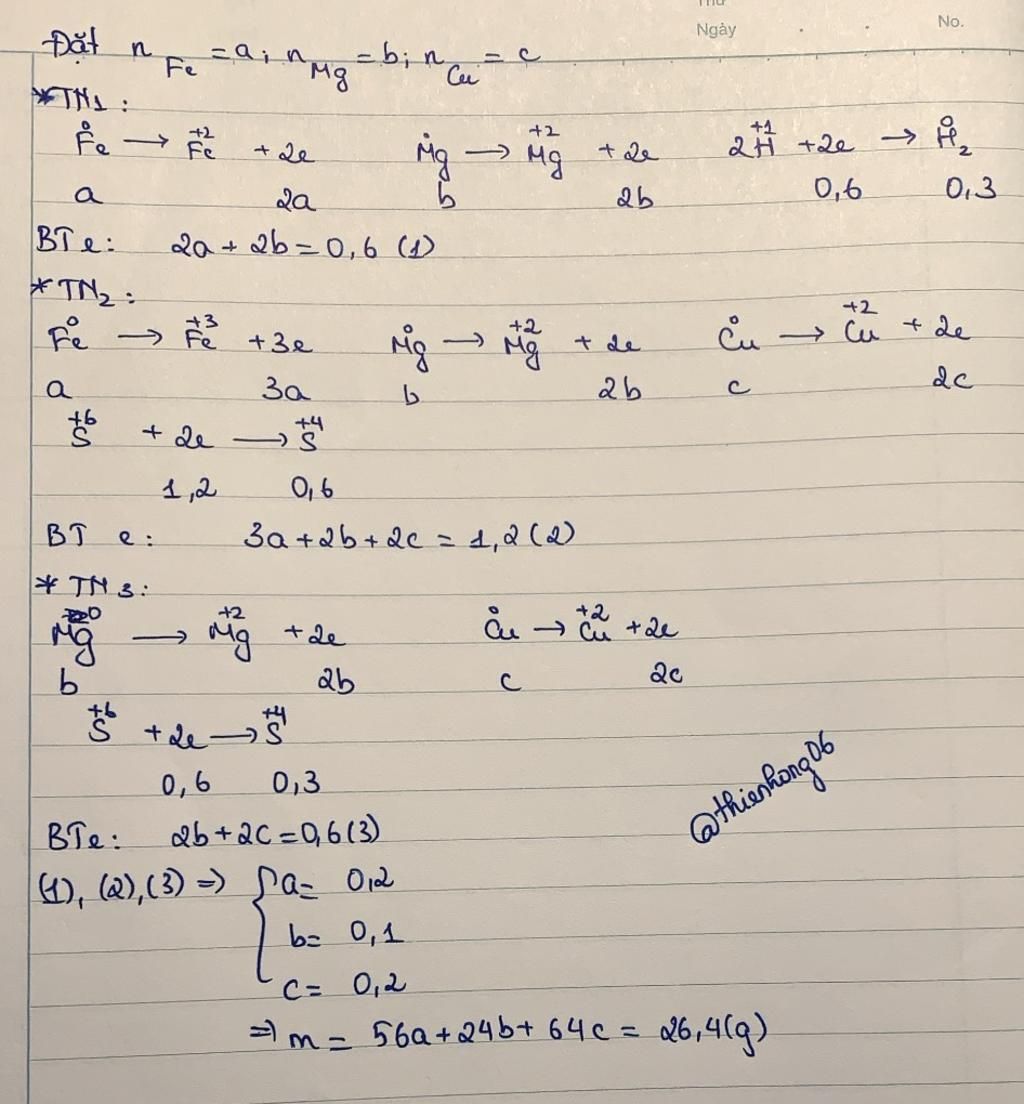 Thứ
Ngày . . No.
Đặt n Fe = a; n Mg = b; n Cu = c
*TN1:
Fe⁰ → Fe⁺² + 2e Mg⁰ → Mg⁺² + 2e 2H⁺¹ + 2e → H₂⁰
a 2a b 2b 0,6 0,3
BTe: 2a + 2b = 0,6 (1)
*TN₂:
Fe⁰ → Fe⁺³ + 3e Mg⁰ → Mg⁺² + 2e Cu⁰ → Cu⁺² + 2e
a 3a b 2b c 2c
S⁺⁶ + 2e → S⁺⁴
1,2 0,6
BT e: 3a + 2b + 2c = 1,2 (2)
* TN 3:
Mg⁰ → Mg⁺² + 2e Cu⁰ → Cu⁺² + 2e
b 2b c 2c
S⁺⁶ + 2e → S⁺⁴
0,6 0,3
BTe: 2b + 2c = 0,6 (3)
@thienhong06
(1), (2), (3) => { a = 0,2
b = 0,1
c = 0,2
=> m = 56a + 24b + 64c = 26,4 (g)